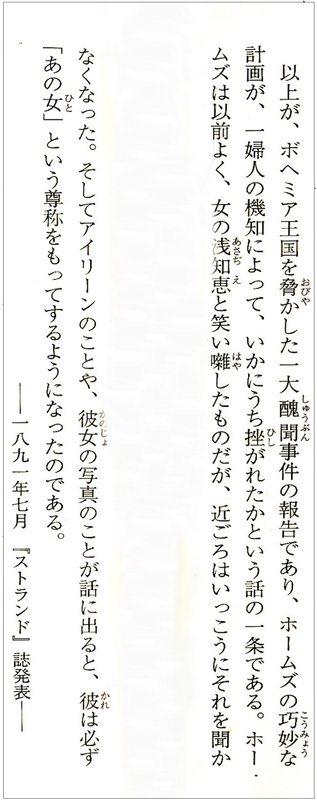 以上が、ボヘミア王国を脅かした一大醜聞事件の報告であり、ホームズの巧妙な
計画が、一婦人の機知によって、いかにうち挫がれたかという話の一条である。ホー
ムズは以前よく、女の浅知恵と笑い囃したものだが、近ごろはいっこうにそれを聞か
なくなった。そしてアイリーンのことや、彼女の写真のことが話に出ると、彼は必ず
「あの女」という尊称をもってするようになったのである。
――一八九一年七月『ストランド』誌発表――